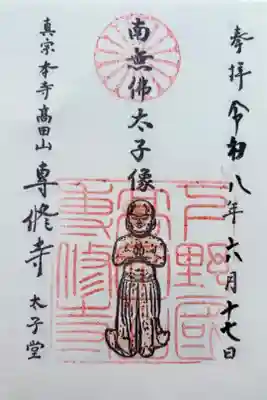 奉拝 令和八年 六月十七日
南無佛太子像
真宗本寺高田山 専修寺 太子堂
下野國
専修寺